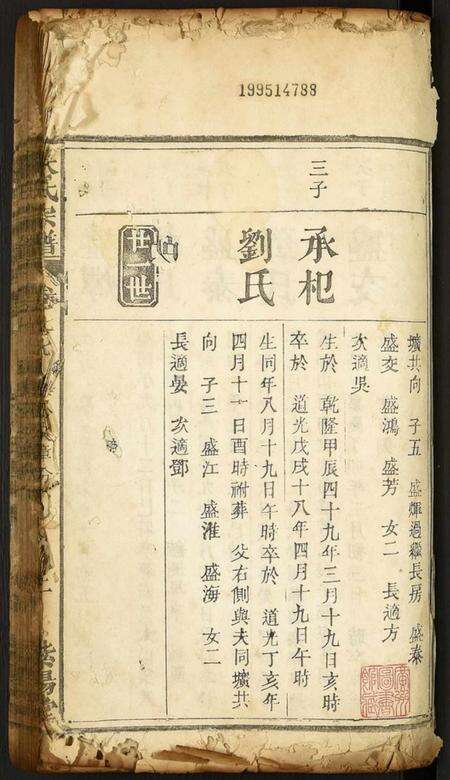 199514788
三子
壙共向 子五 盛輝過繼長房 盛泰
盛交 盛鴻 盛芳 女二 長適方
次適吳
承杞
生於 乾隆甲辰四十九年三月十九日亥時
卒於 道光戊戌十八年四月十九日午時
劉氏
生同年八月十九日午時卒於 道光丁亥年
四月十一日酉時祔葬 父右側與夫同壙共
向 子三 盛江 盛淮 盛海 女二
長適晏 次適鄧
世世
氏宗譜